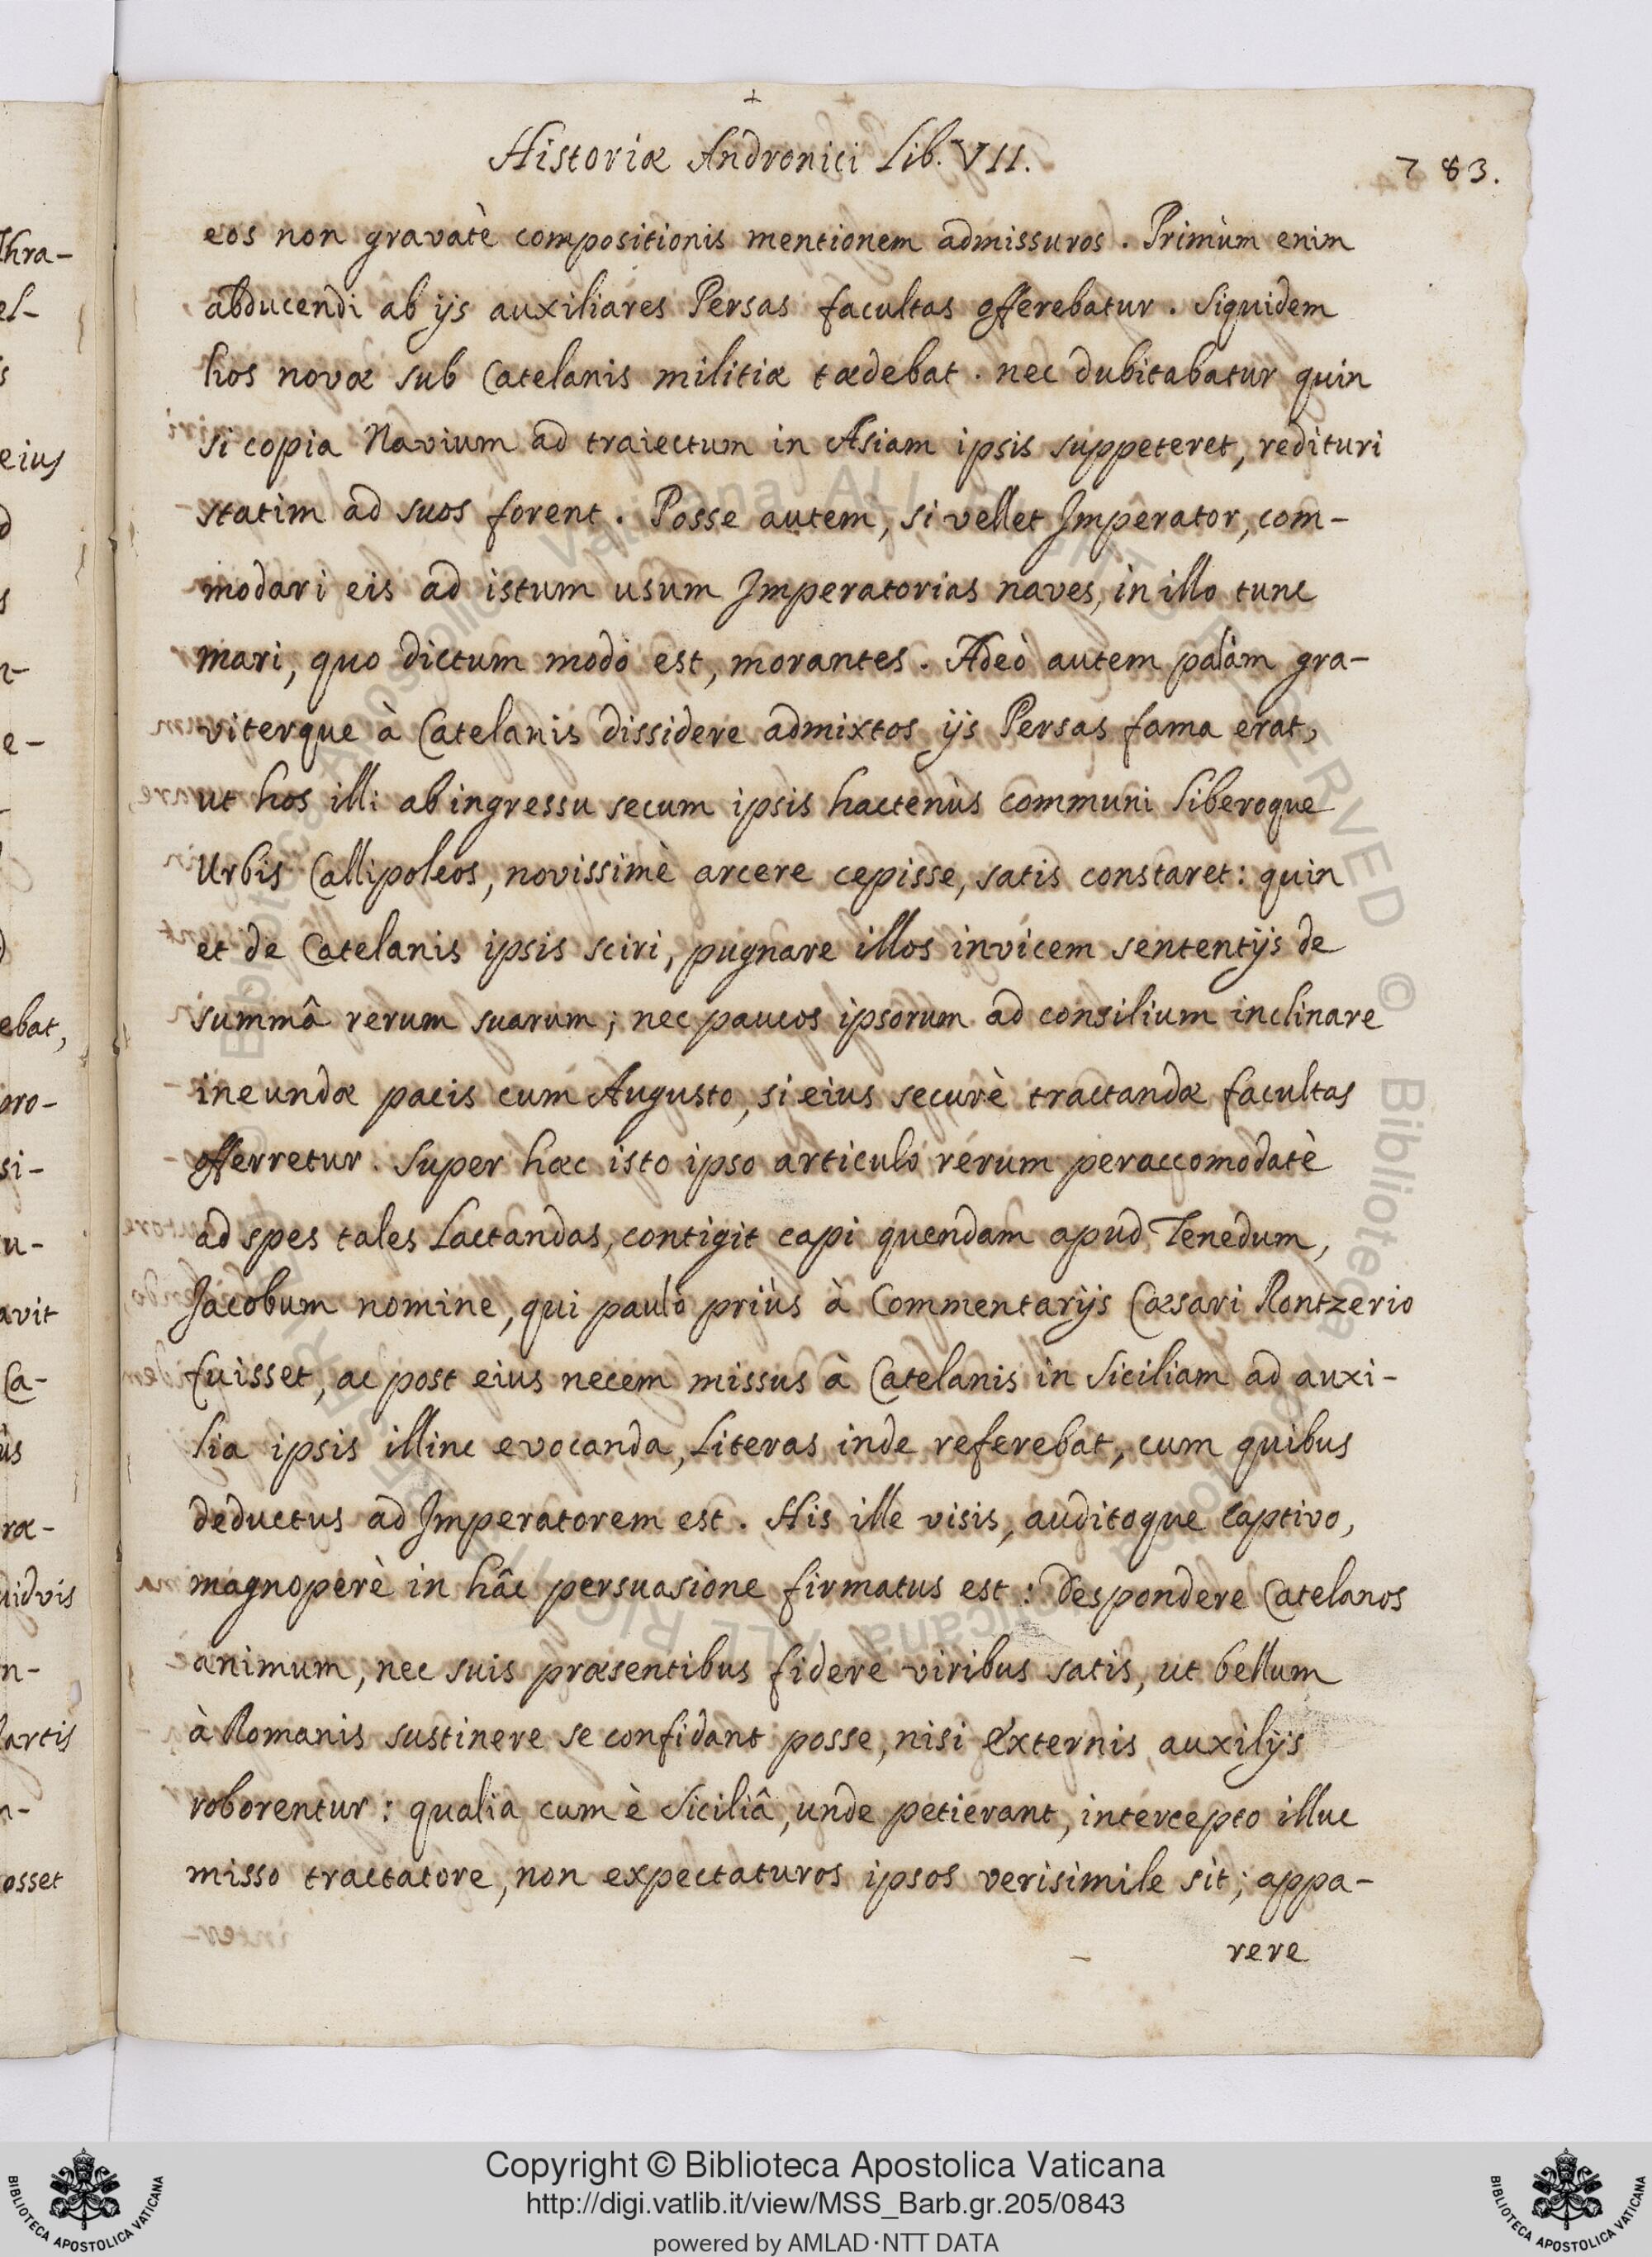 Historiæ Andronici Lib. VII.
783.
eos non gravatè compositionis mentionem admissuros. Primùm enim
abducendi ab ijs auxiliares Persas facultas offerebatur. Siquidem
hos novæ sub Catelanis militiæ tædebat. nec dubitabatur quin
si copia Navium ad traiectum in Asiam ipsis suppeteret, redituri
statim ad suos forent. Posse autem, si vellet Imperator, com-
modari eis ad istum usum Imperatorias naves, in illo tunc
mari, quo dictum modò est, morantes. Adeò autem palàm gra-
viterque à Catelanis dissidere admixtos ijs Persas fama erat,
ut hos illi ab ingressu secum ipsis hactenùs communi liberoque
Urbis Callipoleos, novissimè arcere cepisse, satis constaret: quin
et de Catelanis ipsis sciri, pugnare illos invicem sententijs de
summâ rerum suarum; nec paucos ipsorum ad consilium inclinare
ineundæ pacis cum Augusto, si eius securè tractandæ facultas
offerretur. Super hæc isto ipso articulo rerum peraccomodatè
ad spes tales Lactandas, contigit capi quendam apud Tenedum,
Jacobum nomine, qui paulò priùs à Commentarijs Cæsari Rontzerio
fuisset, ac post eius necem missus à Catelanis in Siciliam ad auxi-
lia ipsis illinc evocanda, Literas inde referebat, cum quibus
deductus ad Imperatorem est. His ille visis, auditoque captivo,
magnoperè in hâc persuasione firmatus est: Despondere Catelanos
animum, nec suis præsentibus fidere viribus satis, ut bellum
à Romanis sustinere se confidant posse, nisi externis auxilijs
roborentur: qualia cum è Siciliâ, unde petierant, intercepto illuc
misso tractatore, non expectaturos ipsos verisimile sit; appa-
rere
hra-
el-
s
eius
d
s
n-
e-
ebat,
pro-
si-
u-
avit
Ca-
ùs
ræ-
uidvis
n-
artis
n-
osset
© Biblioteca Apostolica Vaticana ALL RIGHTS RESERVED © Biblioteca Apostolica Vaticana ALL RIGHTS RESERVED
BIBLIOTECA APOSTOLICA VATICANA
Copyright © Biblioteca Apostolica Vaticana
http://digi.vatlib.it/view/MSS_Barb.gr.205/0843
powered by AMLAD·NTT DATA
BIBLIOTECA APOSTOLICA VATICANA